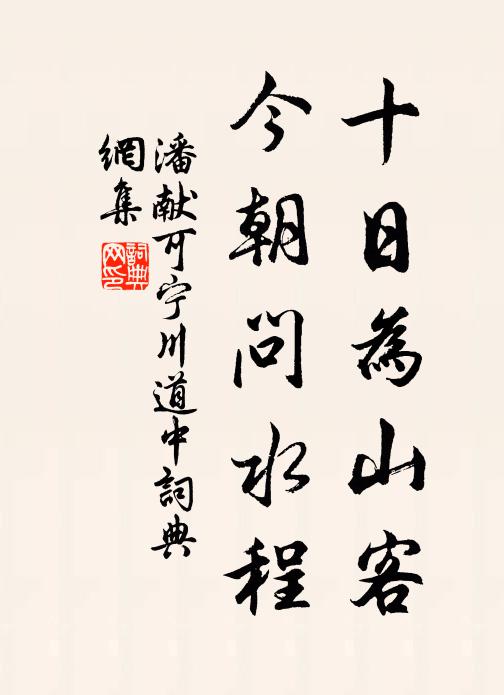 十日為山客
今朝問水程
潘献可宁川道中詞典
網集
詞典
网印